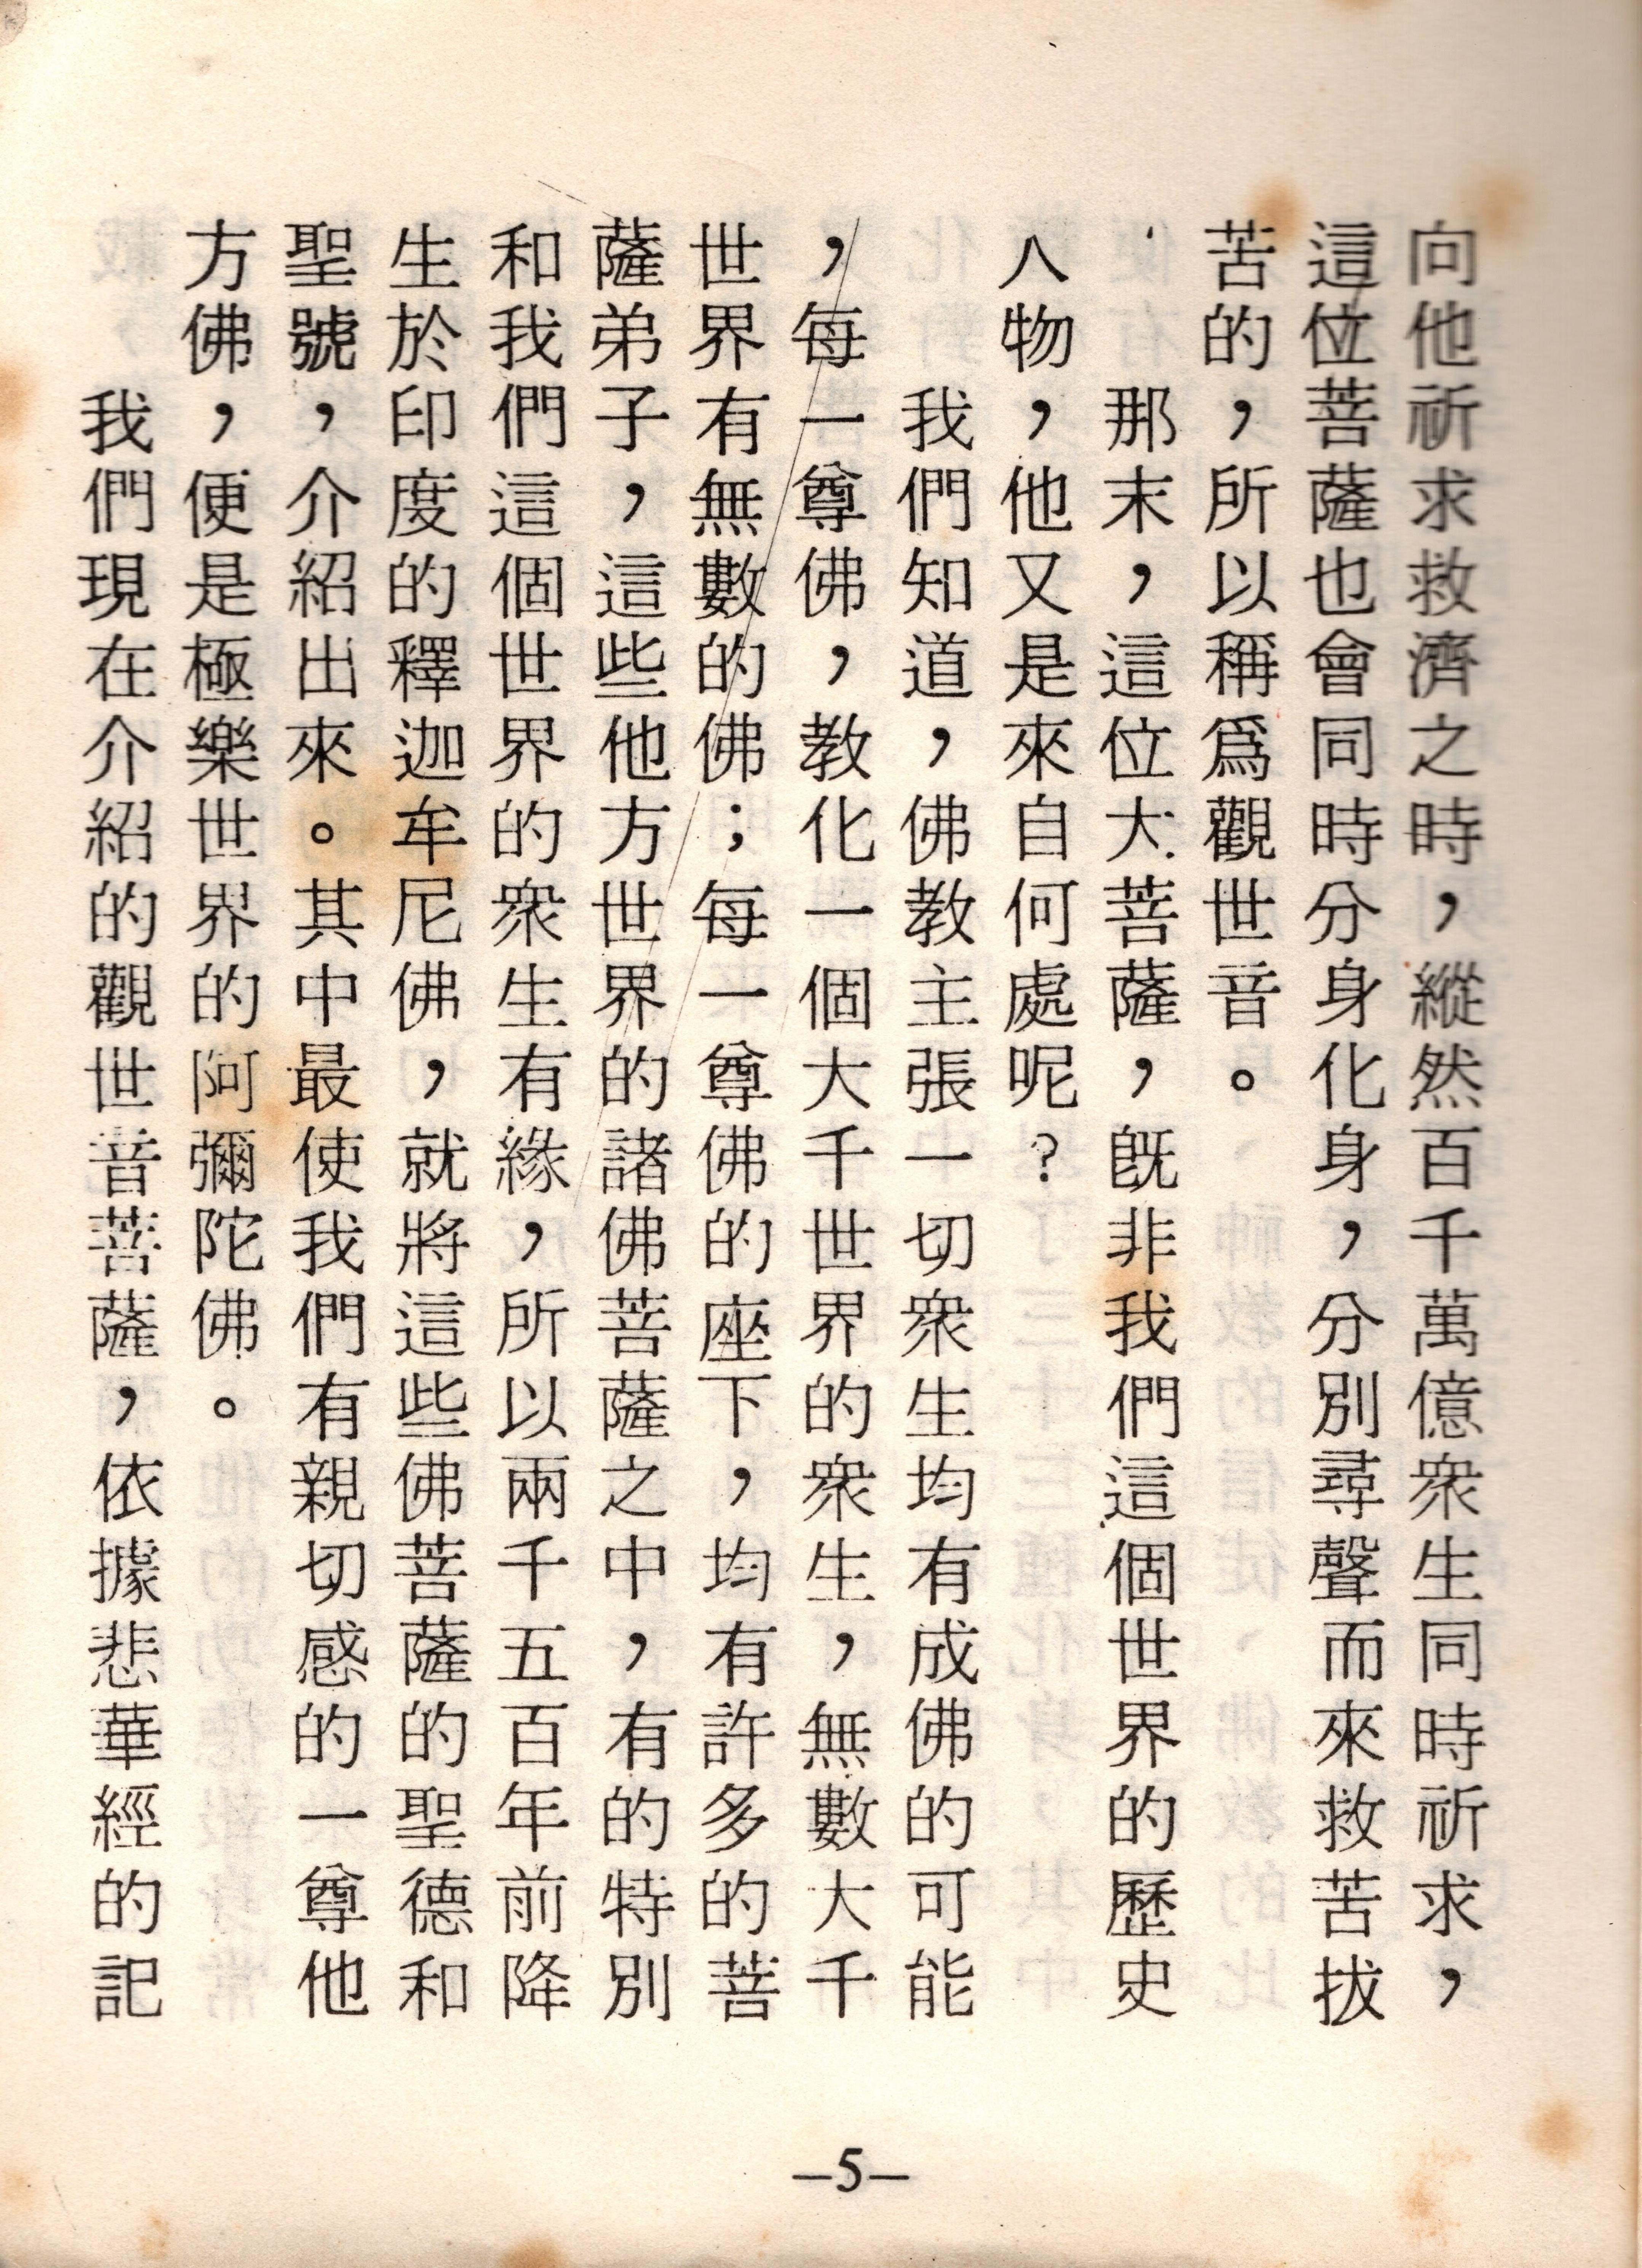 向他祈求救濟之時，縱然百千萬億衆生同時祈求，
這位菩薩也會同時分身化身，分別尋聲而來救苦拔
苦的，所以稱爲觀世音。
那末，這位大菩薩，旣非我們這個世界的歷史
人物，他又是來自何處呢？
我們知道，佛教主張一切衆生均有成佛的可能
，每一尊佛，教化一個大千世界的衆生，無數大千
世界有無數的佛；每一尊佛的座下，均有許多的菩
薩弟子，這些他方世界的諸佛菩薩之中，有的特別
和我們這個世界的衆生有緣，所以兩千五百年前降
生於印度的釋迦牟尼佛，就將這些佛菩薩的聖德和
聖號，介紹出來。其中最使我們有親切感的一尊他
方佛，便是極樂世界的阿彌陀佛。
我們現在介紹的觀世音菩薩，依據悲華經的記
—5—